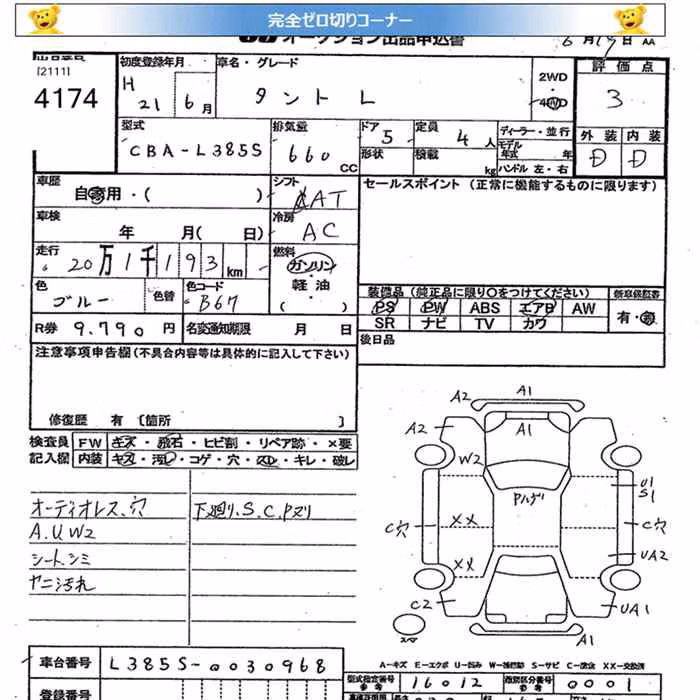 完全ゼロ切りコーナー
オークション出品申込書
6月19日 AA
[2111]
4174
初度登録年月
H 21 6月
車名・グレード
タント L
2WD
4WD
評価点
3
型式
CBA-L385S
排気量
660 CC
ドア 5
形状
定員 4人
積載 kg
ディーラー・並行
モデル年式 年
ハンドル 左・右
外装 内装
D D
車歴
自家用・( )
シフト
AT
セールスポイント (正常に機能するものに限ります)
車検
年 月( 日)
冷房
AC
走行
20万1千193km
燃料
ガソリン
軽油
( )
色
ブルー
色替
色コード
B67
装備品 (純正品に限り○をつけてください)
新車保証書
PS PW ABS エアB AW
SR ナビ TV カワ
有・無
R券 9.790円
名変通知期限 月 日
後日品
注意事項申告欄(不具合内容等は具体的に記入して下さい)
修復歴 有 [箇所 ]
検査員 FW キズ・飛石・ヒビ割・リペア跡・×要
記入欄 内装 キズ・汚レ・コゲ・穴・スレ・キレ・破レ
オーディオレス、穴
下廻り、S.C.Pヌリ
A.UW2
シート、シミ
ヤニ汚れ
A2 A1
A2 A1
W2
Pハゲ
U1
S1
C穴 XX C穴
XX UA2
C2 UA1
A1
スペア
A-キズ E-エクボ U-凹み W-補修跡 S-サビ C-腐食 XX-交換済
車台番号 L385S-0030968
型式指定番号 参考 16012
類別区分番号 参考 0001
登録番号